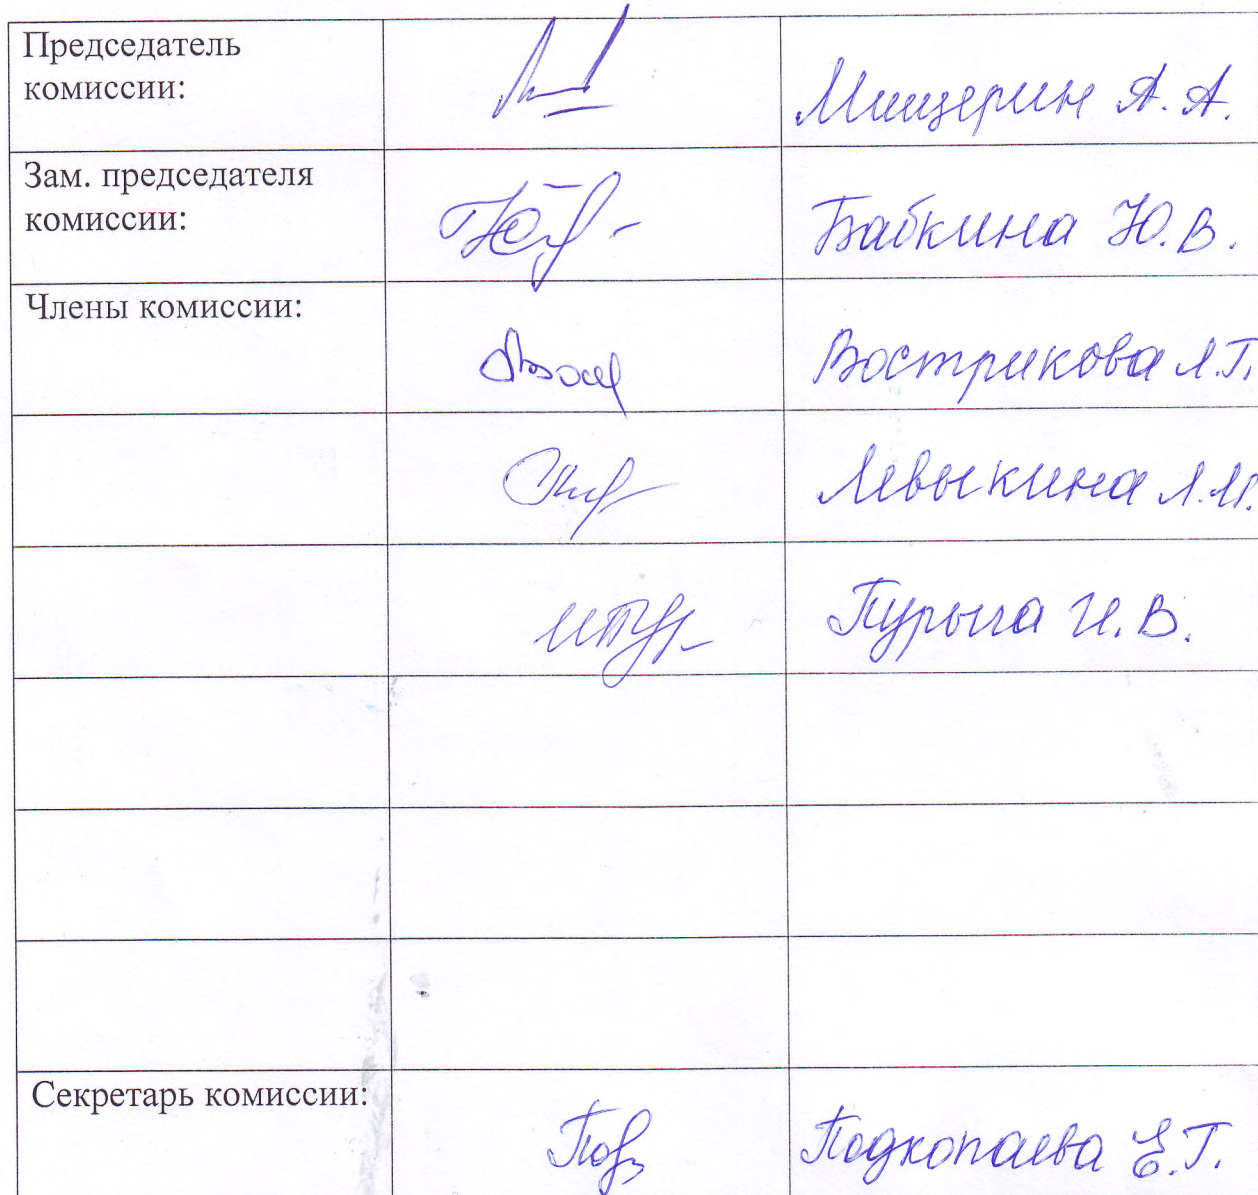 Председатель
комиссии:
Мищерин А. А.
Зам. председателя
комиссии:
Бабкина Ю. В.
Члены комиссии:
Вострикова Л.П.
Левыкина Л.И.
Пурыга И. В.
Секретарь комиссии:
Подкопаева Е. Г.